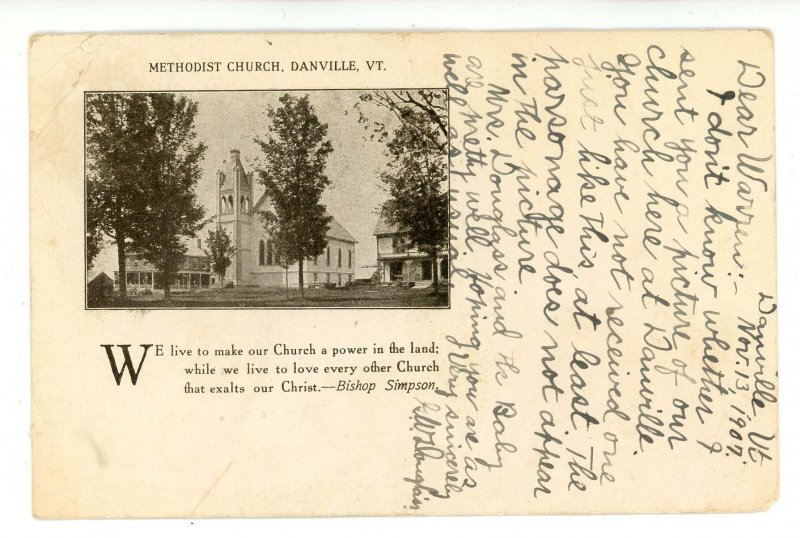 METHODIST CHURCH, DANVILLE, VT.
WE live to make our Church a power in the land;
while we live to love every other Church
that exalts our Christ.—Bishop Simpson.
Danville, Vt
Nov. 13, 1907.
Dear Warren:-
I don't know whether I
sent you a picture of our
church here at Danville.
You have not received one
just like this at least. The
parsonage does not appear
in the picture
Mrs. Douglass and the Baby
are pretty well. Hoping you are as
well as you
Very sincerely